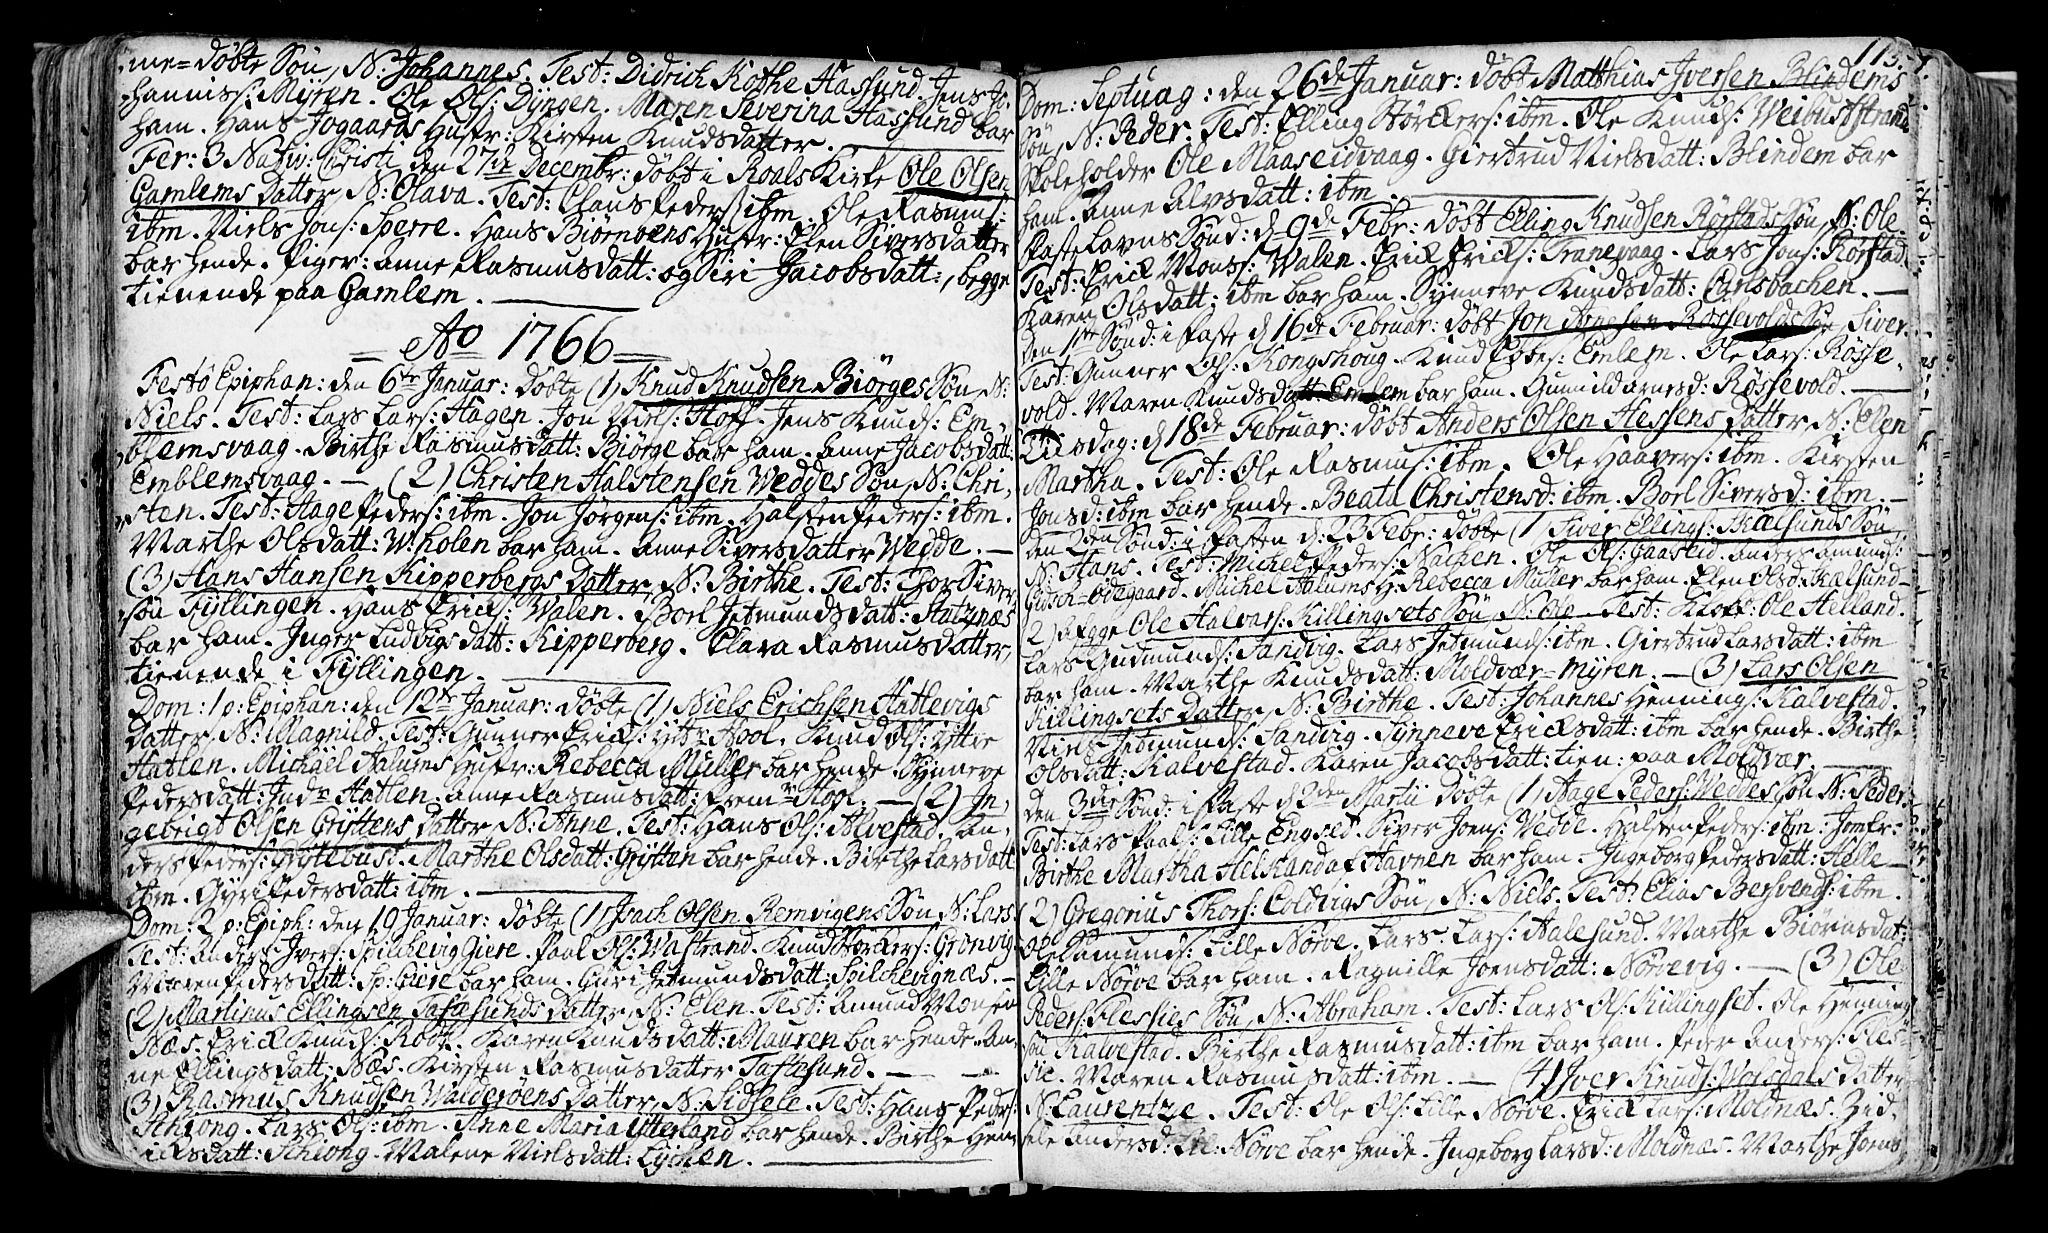 me=døbte Søn, N: Johannes. Test: Didrich Kothe Haslund. Jens Jo-
hannis: Myren. Ole Ols: Dyngen. Maren Severina Haslund bar
ham. Hans Jogaards Hustr: Kirsten Knudsdatter.
Fer: 3 Nativ: Christi den 27de Decembr: døbt i Roals Kirke Ole Olsen
Gamlems Datter, N: Olava. Test: Claus Peders: ibm. Ole Rasmus:
ibm. Niels Jons: Sperre. Hans Biørnøens Hustr: Elen Siversdatter
bar hende. Piger: Anne Rasmusdatt: og Siri Jacobsdatt:, begge
tienende paa Gamlem.
Ao 1766
Festo Epiphan: den 6te Januar: døbte (1) Knud Knudsen Biørges Søn, N:
Niels. Test: Lars Lars: Hagen. Jon Niels: Hoff. Jens Knuds: Em-
blemsvaag. Birthe Rasmusdatt: Biørge bar ham. Anne Jacobsdatt:
Emblemsvaag. — (2) Christen Halstensen Weddes Søn, N: Chri-
sten. Test: Aage Peders: ibm. Jon Jørgens: ibm. Halsten Peders: ibm.
Marthe Olsdatt: Wholen bar ham. Anne Siversdatter Wedde. —
(3) Hans Hansen Kipperbergs Datter, N: Birthe. Test: Thor Siver-
søn Fyllingen. Hans Erics: Walen. Borl Jetmundsdatt: Hatznæs
bar ham. Inger Ludvigsdatt: Kipperberg. Clara Rasmusdatter,
tienende i Fyllingen.
Dom: 1 p: Epiphan: den 12te Januar: døbte (1) Niels Erichsen Hatlevigs
Datter, N: Magnild. Test: Gunner Erics: ytr Hool. Knud Ols: yttre
Hatlen. Michäel Aalums Hustr: Rebecca Müller bar hende. Synneve
Pedersdatt: Indr Hatlen. Anne Rasmusdatt: fremr Hool. — (2) In-
gebrigt Olsen Grittens Datter N: Anne. Test: Hans Ols: Alvestad. An-
ders Peders: Gryttebust. Marthe Olsdatt: Grytten bar hende. Birthe Larsdatt
ibm. Gyri Pedersdatt: ibm.
Dom: 2 p: Epiph: den 19 Januar: døbte (1) Isach Olsen Remvigens Søn N: Lars
Test: Anders Ivers: Spilchevig Giere. Paal Ols: Wastrand. Knud Størkers: Grønvig
Maren Pedersdatt: Sp: Giere bar ham. Guri Jetmundsdatt: Spilchevignæs. —
(2) Martinus Ellingsen Tafiesunds Datter, N: Elen. Test: Amund Monsen
Næs. Erick Knuds: Rødt. Karen Knudsdatt: Mauren bar hende. An-
ne Ellingsdatt: Næs. Kirsten Rasmusdatter Taftesund. —
(3) Rasmus Knudsen Walderøens Datter, N: Sidsele. Test: Hans Peders:
Schiong. Lars Ols: ibm. Anne Maria Ytterland bar hende. Birthe Hen-
ricksdatt: Schiong. Malene Nielsdatt: Lychen.
115.
Dom: Septuag: den 26de Januar: døbt Matthias Iversen Blindems
Søn, N: Peder. Test: Elling Størckers: ibm. Ole Knuds: Weibust strand
Skoleholder Ole Maaseidvaag. Giertrud Nielsdatt: Blindem bar
ham. Anne Alvsdatt: ibm
Fastelavns Sønd: d 9de Febr: døbt Elling Knudsen Rørstads Søn, N: Ole.
Test: Erick Mons: Walen. Erick Ericks: Tranevaag. Lars Jons: Rørstad.
Karen Olsdatt: ibm bar ham. Synneve Knudsdatt: Carlsbachen. —
Den 1ste Sønd: i Faste d 16de Februar: døbt Jon Arnesen Røssevolds Søn, Siver.
Test: Gunner Ols: Kongshoug. Knud Ols: Emlem. Ole Lars: Røsse-
vold. Maren Knudsdatt: Emlem bar ham. Gunnild Arnesd: Røssevold. —
Tiisdag: d 18de Februar: døbt Anders Olsen Hessens Datter N: Elen
Martha. Test: Ole Rasmus: ibm. Ole Haavers: ibm. Kirsten
Jonsd: ibm bar hende. Beata Christensd: ibm. Borl Siversd: ibm. —
Den 2den Sønd: i Fasten d: 23 Febr: døbte (1) Siver Ellings: Kælsunds Søn
N: Hans. Test: Michel Peders: Nachen. Ole Ols: Gaaseid. Anders Amunds:
Gidsch=Ødegaard. Michel Aalums H: Rebecca Müller bar ham. Elen Olsd: Kælsund—
2) Ægge Ole Halvars: Killingsets Søn, N: Ole. Test: Klok: Ole Helland.
Lars Gudmunds: Sandvig. Lars Jetmunds: ibm. Giertrud Larsdatt: ibm
bar ham. Marthe Knudsdatt: Moldvær=Myren. — (3) Lars Olsen
Killingsets Datter, N: Birthe. Test: Johannes Hennings: Kalvestad.
Niels Jetmunds: Sandvig. Synneve Ericksdatt: ibm bar hende. Birthe
Olsdatt: Kalvestad. Karen Jacobsdatt: tien: paa Moldvær.
Den 3die Sønd: i Faste d 2den Martii døbte (1) Aage Peders: Weddes Søn N: Peder
Test: Lars Paals: Lille Engset. Siver Joens: Wedde. Halsten Peders: ibm. Jomfr:
Birthe Martha Helskand af Havnen bar ham. Ingeborg Pedersdatt: Helle—
(2) Gregorius Thors: Coldvigs Søn, N: Niels. Test: Elias Bersvends: ibm.
Ole Amunds: Lille Nørve. Lars Lars: Aalesund. Marthe Biørnsdat:
Lille Nørve bar ham. Ragnille Joensdatt: Nørvevig. — (3) Ole
Peders: Flessies Søn, N: Abraham. Test: Lars Ols: Killingset. Ole Henning-
søn Kalvestad. Birthe Rasmusdatt: ibm bar ham. Peder Anders: Fles-
sie. Maren Rasmusdatt: ibm. — (4) Iver Knuds: Volsdals Datter
N: Laurentze. Test: Ole Ols: Lille Nørve. Erick Lars: Moldnæs. Zid-
sele Andersd: Lil: Nørve bar hende. Ingeborg Larsd: Moldnæs. Marthe Jorns